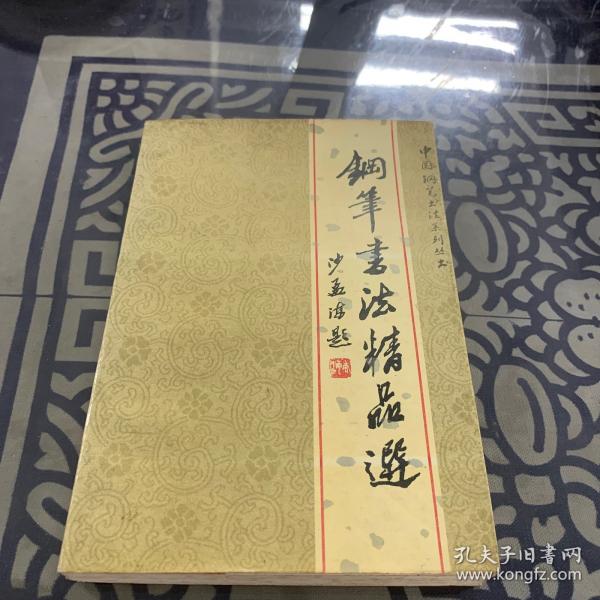 中国钢笔书法系列丛书
鋼筆書法精品選
沙孟海題
孔夫子旧书网
www.kongfz.com